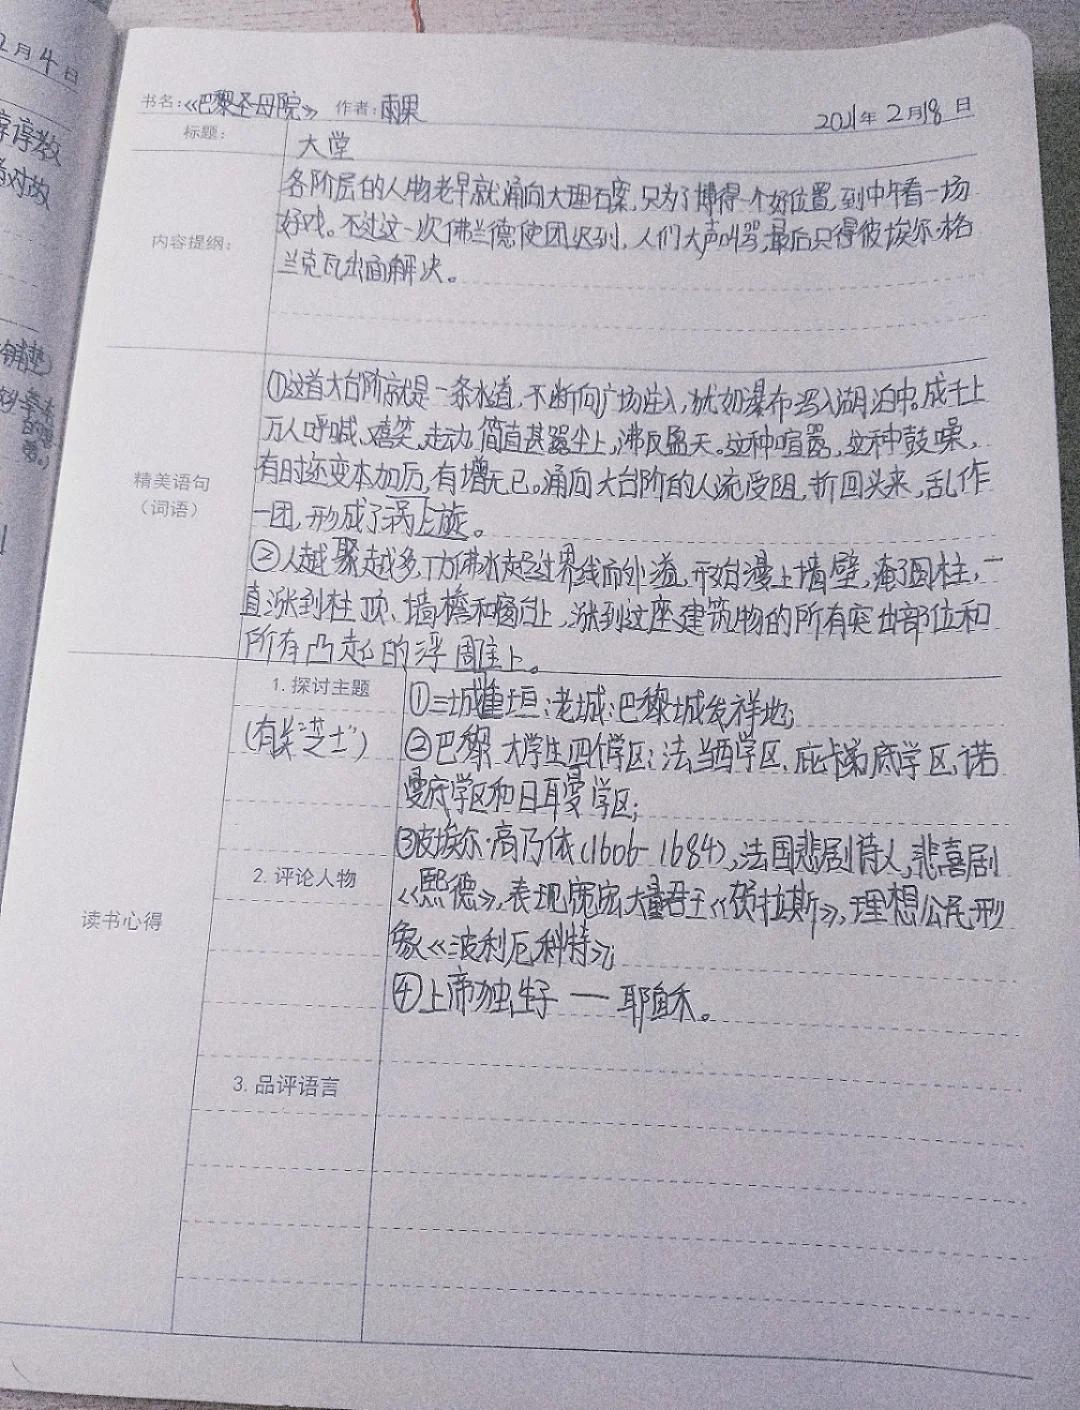 2月4日
谆谆教
对故
铺垫)
书名:《巴黎圣母院》 作者:雨果 2021年2月18日
标题: 大堂
内容提纲:
各阶层的人物老早就涌向大理石案,只为了博得一个好位置,到中午看一场
好戏。不过这一次佛兰德使团迟到,人们大声叫骂,最后只得彼埃尔·格
兰克瓦出面解决。
精美语句
(词语)
①这首大台阶就是一条水道,不断向广场注入,犹如瀑布泻入湖泊中。成千上
万人呼喊、嬉笑、走动,简直甚嚣尘上,沸反盈天。这种喧嚣,这种鼓噪,
有时还变本加厉,有增无已。涌向大台阶的人流受阻,折回头来,乱作
一团,形成了涡旋。
②人越聚越多,仿佛水超过界线而外溢,开始漫上墙壁,淹了圆柱,一
直涨到柱顶、墙檐和窗台上,涨到这座建筑物的所有突出部位和
所有凸起的浮雕上。
读书心得
1.探讨主题
(有关“芝士”)
①三城重垣:老城:巴黎城发祥地;
②巴黎大学生四个学区:法兰西学区、庇卡第底学区、诺
曼府学区和日耳曼学区;
③皮埃尔·高乃依(1606-1684),法国悲剧诗人,悲喜剧
《熙德》,表现宽宏大量君王《贺拉斯》,理想公民形
象《波利厄科特》;
④上帝独生子——耶稣。
2.评论人物
3.品评语言